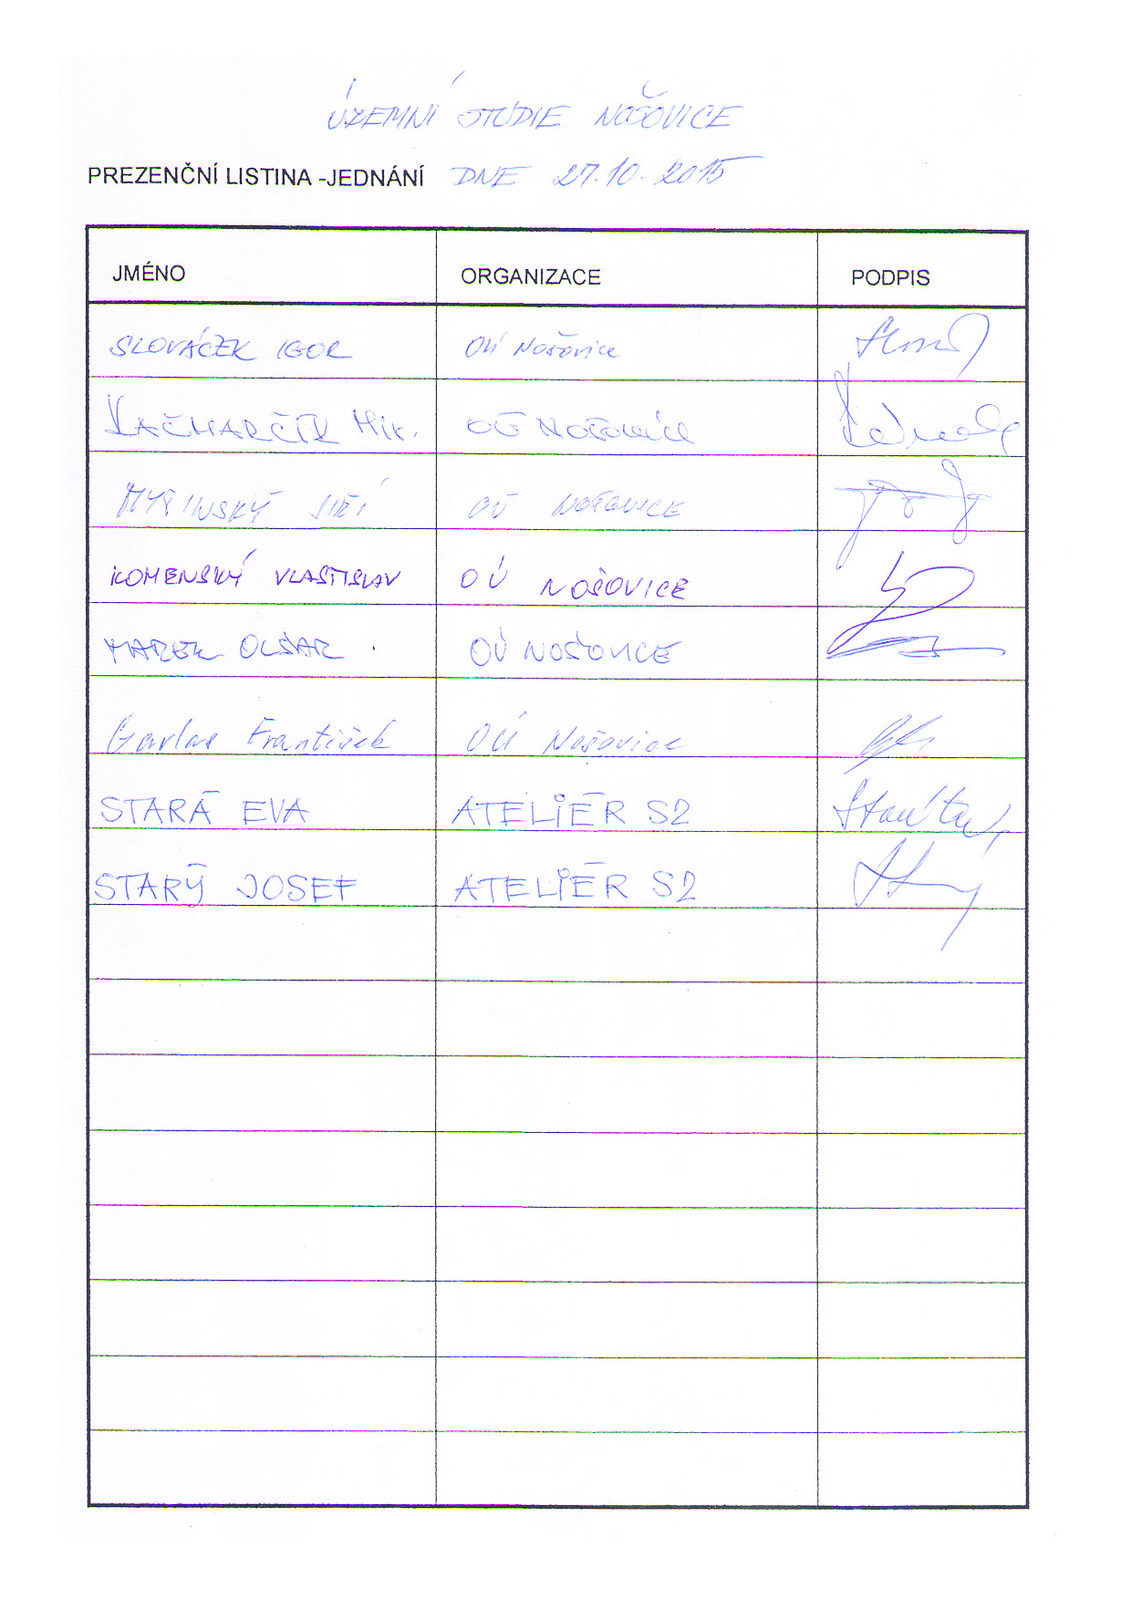 ÚZEMNÍ STUDIE NOŠOVICE
PREZENČNÍ LISTINA -JEDNÁNÍ DNE 27.10.2015
JMÉNO ORGANIZACE PODPIS
SLOVÁČEK IGOR OÚ Nošovice
KAČMARČÍK Mik. OÚ NOŠOVICE
MYŠINSKÝ JIŘÍ OÚ NOŠOVICE
KOMENSKÝ VLASTISLAV OÚ NOŠOVICE
MAREK OLŠAR OÚ NOŠOVICE
Garlas František OÚ Nošovice
STARÁ EVA ATELIÉR S2
STARÝ JOSEF ATELIÉR S2